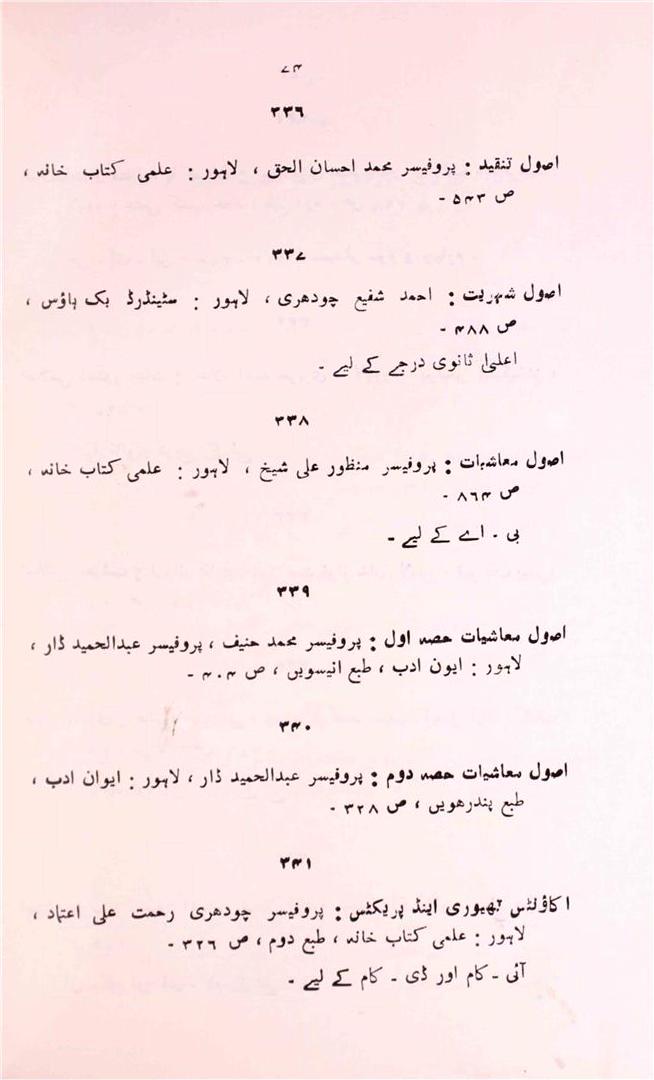 ۷۴
۳۳۶
اصول تنقید : پروفیسر محمد احسان الحق ، لاہور : علمی کتاب خانہ ،
ص ۵۴۳ -
۳۳۷
اصول شہریت : احمد شفیع چودھری ، لاہور : سٹینڈرڈ بک ہاؤس ،
ص ۴۸۸ -
اعلیٰ ثانوی درجے کے لیے -
۳۳۸
اصول معاشیات : پروفیسر منظور علی شیخ ، لاہور : علمی کتاب خانہ ،
ص ۸۶۴ -
بی ۔ اے کے لیے -
۳۳۹
اصول معاشیات حصہ اول : پروفیسر محمد حنیف ، پروفیسر عبدالحمید ڈار ،
لاہور : ایون ادب ، طبع انیسویں ، ص ۴۰۴ -
۳۴۰
اصول معاشیات حصہ دوم : پروفیسر عبدالحمید ڈار ، لاہور : ایوان ادب ،
طبع پندرھویں ، ص ۳۲۸ -
۳۴۱
اکاؤنٹس تھیوری اینڈ پریکٹس : پروفیسر چودھری رحمت علی اعتماد ،
لاہور : علمی کتاب خانہ ، طبع دوم ، ص ۳۲۶ -
آئی - کام اور ڈی - کام کے لیے -